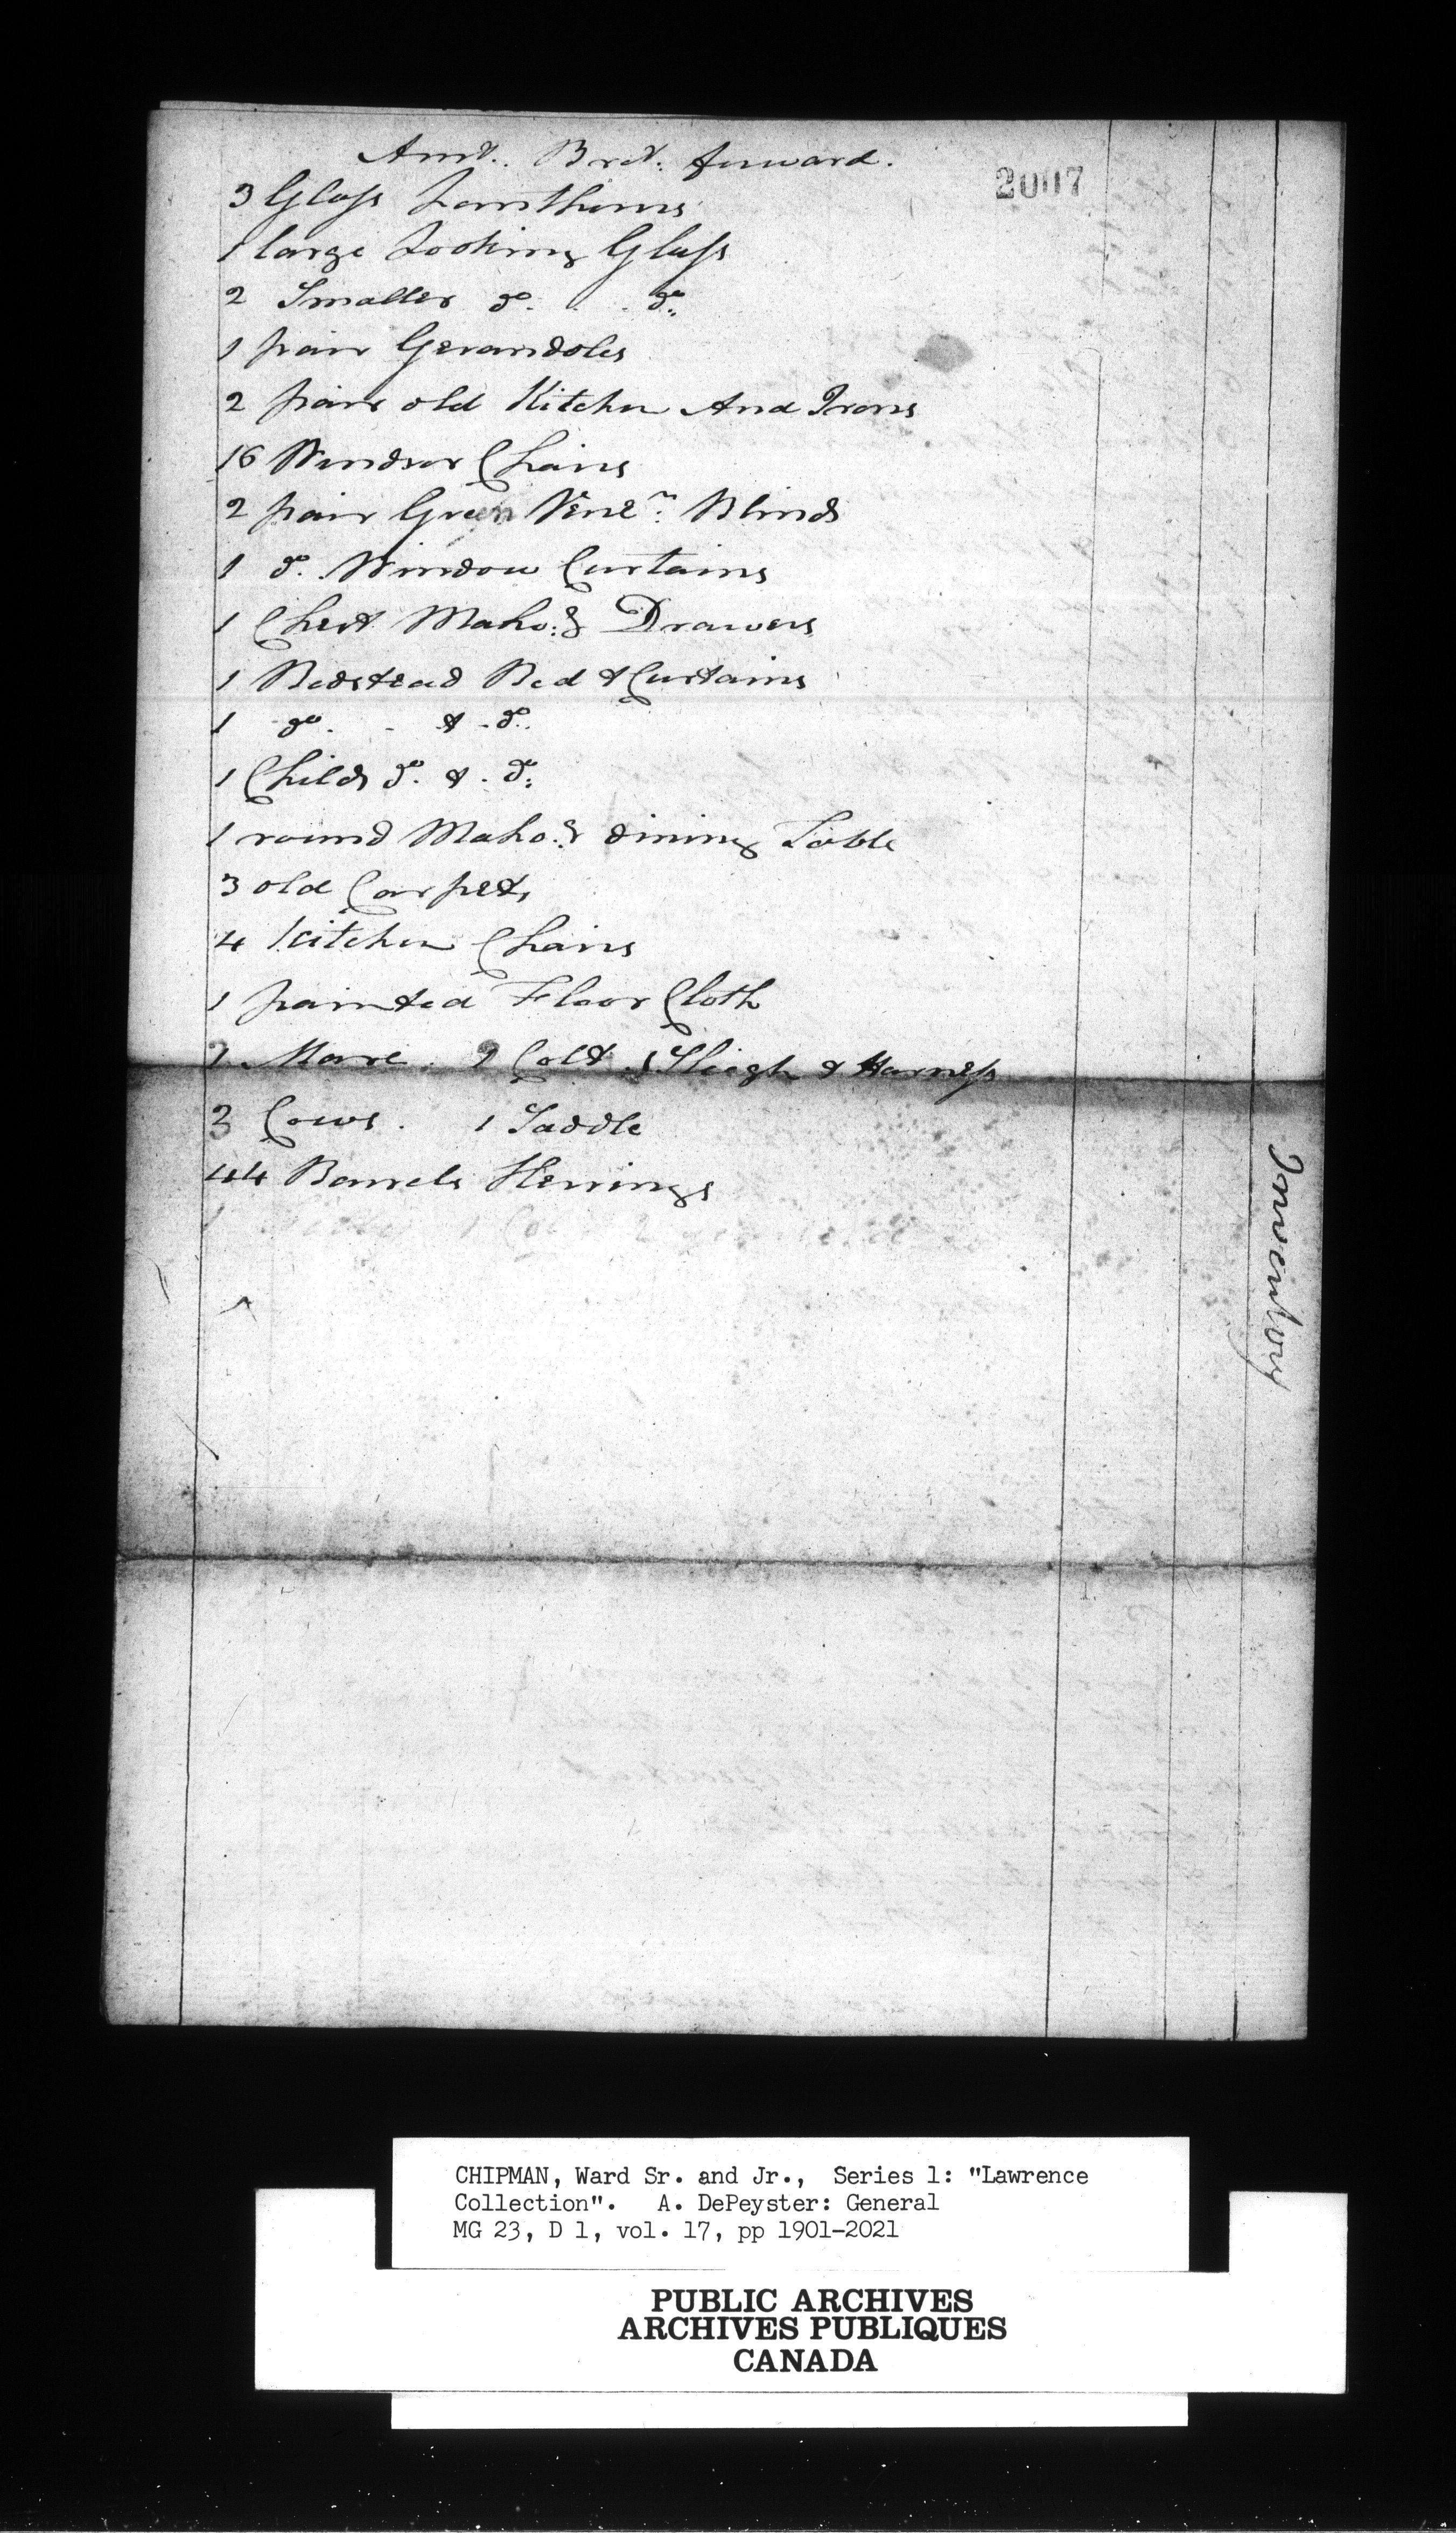 Amt. Brot. forward.
2007
3 Glass Lanthorns
1 large Looking Glass
2 Smaller do. . . do.
1 pair Gerandoles
2 pair old Kitchen And Irons
16 Windsor Chairs
2 pair Green Venen. Blinds
1 do. Window Curtains
1 Chest Maho:y Drawers
1 Bedstead Bed & Curtains
1 do. - & - do.
1 Childs do. & . do.
1 round Maho:y dining Table
3 old Carpets
4 Kitchen Chairs
1 painted Floor Cloth
1 Mare . 1 Colt . 1 Sleigh & Harness
3 Cows . 1 Saddle
44 Barrels Herrings
Inventory
CHIPMAN, Ward Sr. and Jr., Series 1: "Lawrence
Collection". A. DePeyster: General
MG 23, D 1, vol. 17, pp 1901-2021
PUBLIC ARCHIVES
ARCHIVES PUBLIQUES
CANADA